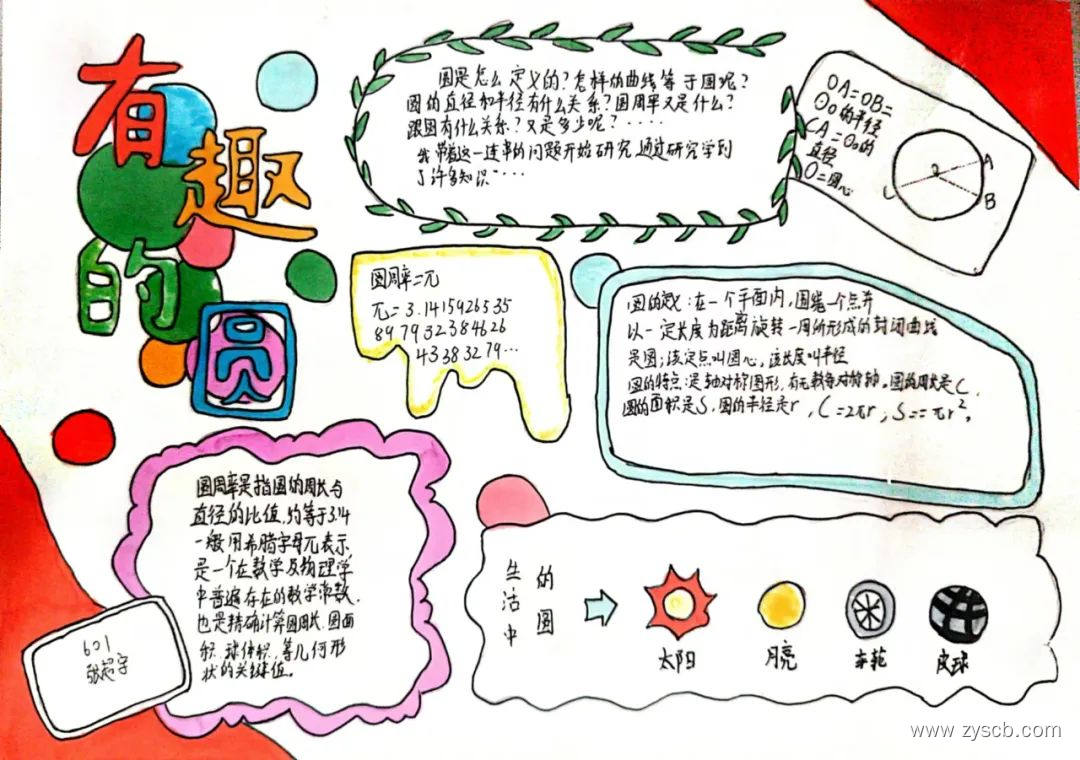 有趣的圆
圆是怎么定义的？怎样的曲线等于圆呢？
圆的直径和半径有什么关系？圆周率又是什么？
跟圆有什么关系？又是多少呢？·····
我带着这一连串的问题开始研究，通过研究学到
了许多知识····
OA=OB=
⊙O的半径
CA=⊙O的
直径
O=圆心
A
O
C
B
圆周率=兀
兀=3.1415926535
897932384626
43383279···
圆的定义：在一个平面内，围绕一个点并
以一定长度为距离旋转一周所形成的封闭曲线
是圆；该定点叫圆心，该长度叫半径
圆的特点：是轴对称图形，有无数条对称轴。圆的周长是C，
圆的面积是S，圆的半径是r，C=2πr；S==πr²。
圆周率是指圆的周长与
直径的比值，约等于3.14
一般用希腊字母兀表示，
是一个在数学及物理学
中普遍存在的数学常数，
也是精确计算圆周长、圆面
积、球体积，等几何形
状的关键值。
601
张超宇
生活中的圆
太阳
月亮
车轮
皮球
www.zyscb.com